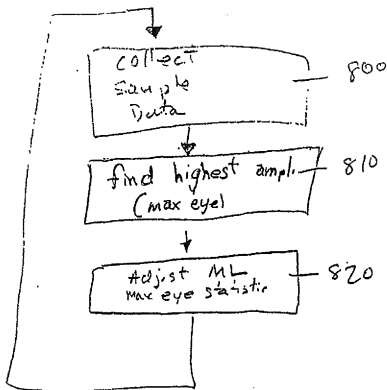 collect
Sample
Data
800
find highest ampl.
(max eye)
810
Adjust ML
max eye statistic
820